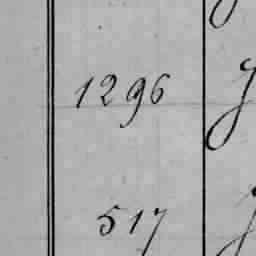 1296
517